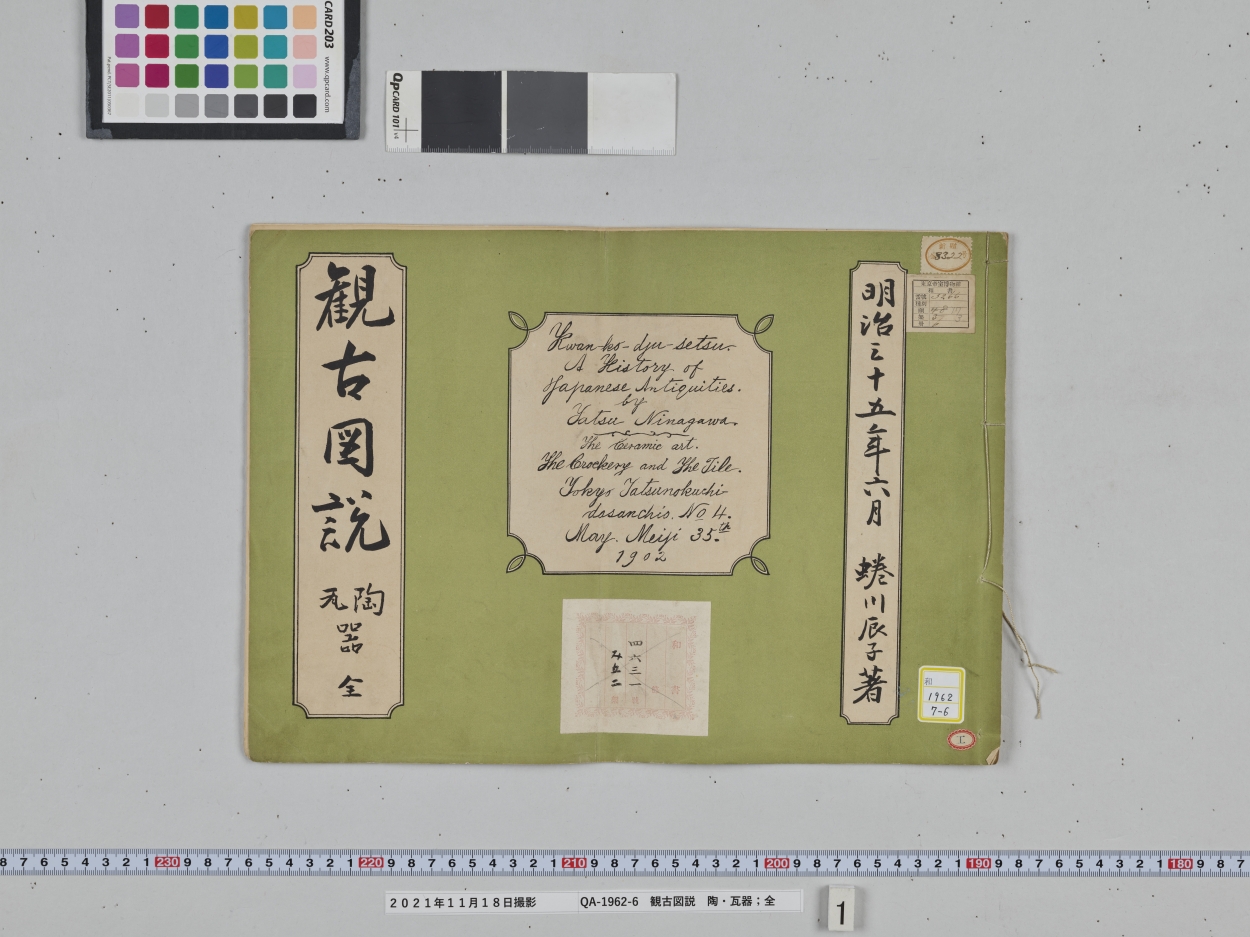 CARD 203
www.qpcard.com
QPCARD 101 v4
観古図説
陶瓦
器
全
Kwan-ko-dju-setsu.
A History of
Japanese Antiquities.
by
Tatsu Ninagawa.
The Ceramic art.
The Crockery and The Tile.
Tokyo Tatsunokuchi
dosanchio. No 4.
May. Meiji 35th
1902
明治三十五年六月 蜷川辰子著
和書
四六三一
み五二
和
1962
7-6
工
8 7 6 5 4 3 2 1 230 9 8 7 6 5 4 3 2 1 220 9 8 7 6 5 4 3 2 1 210 9 8 7 6 5 4 3 2 1 200 9 8 7 6 5 4 3 2 1 190 9 8 7 6 5 4 3 2 1 180 9 8 7
2021年11月18日撮影 QA-1962-6 観古図説 陶・瓦器；全
1